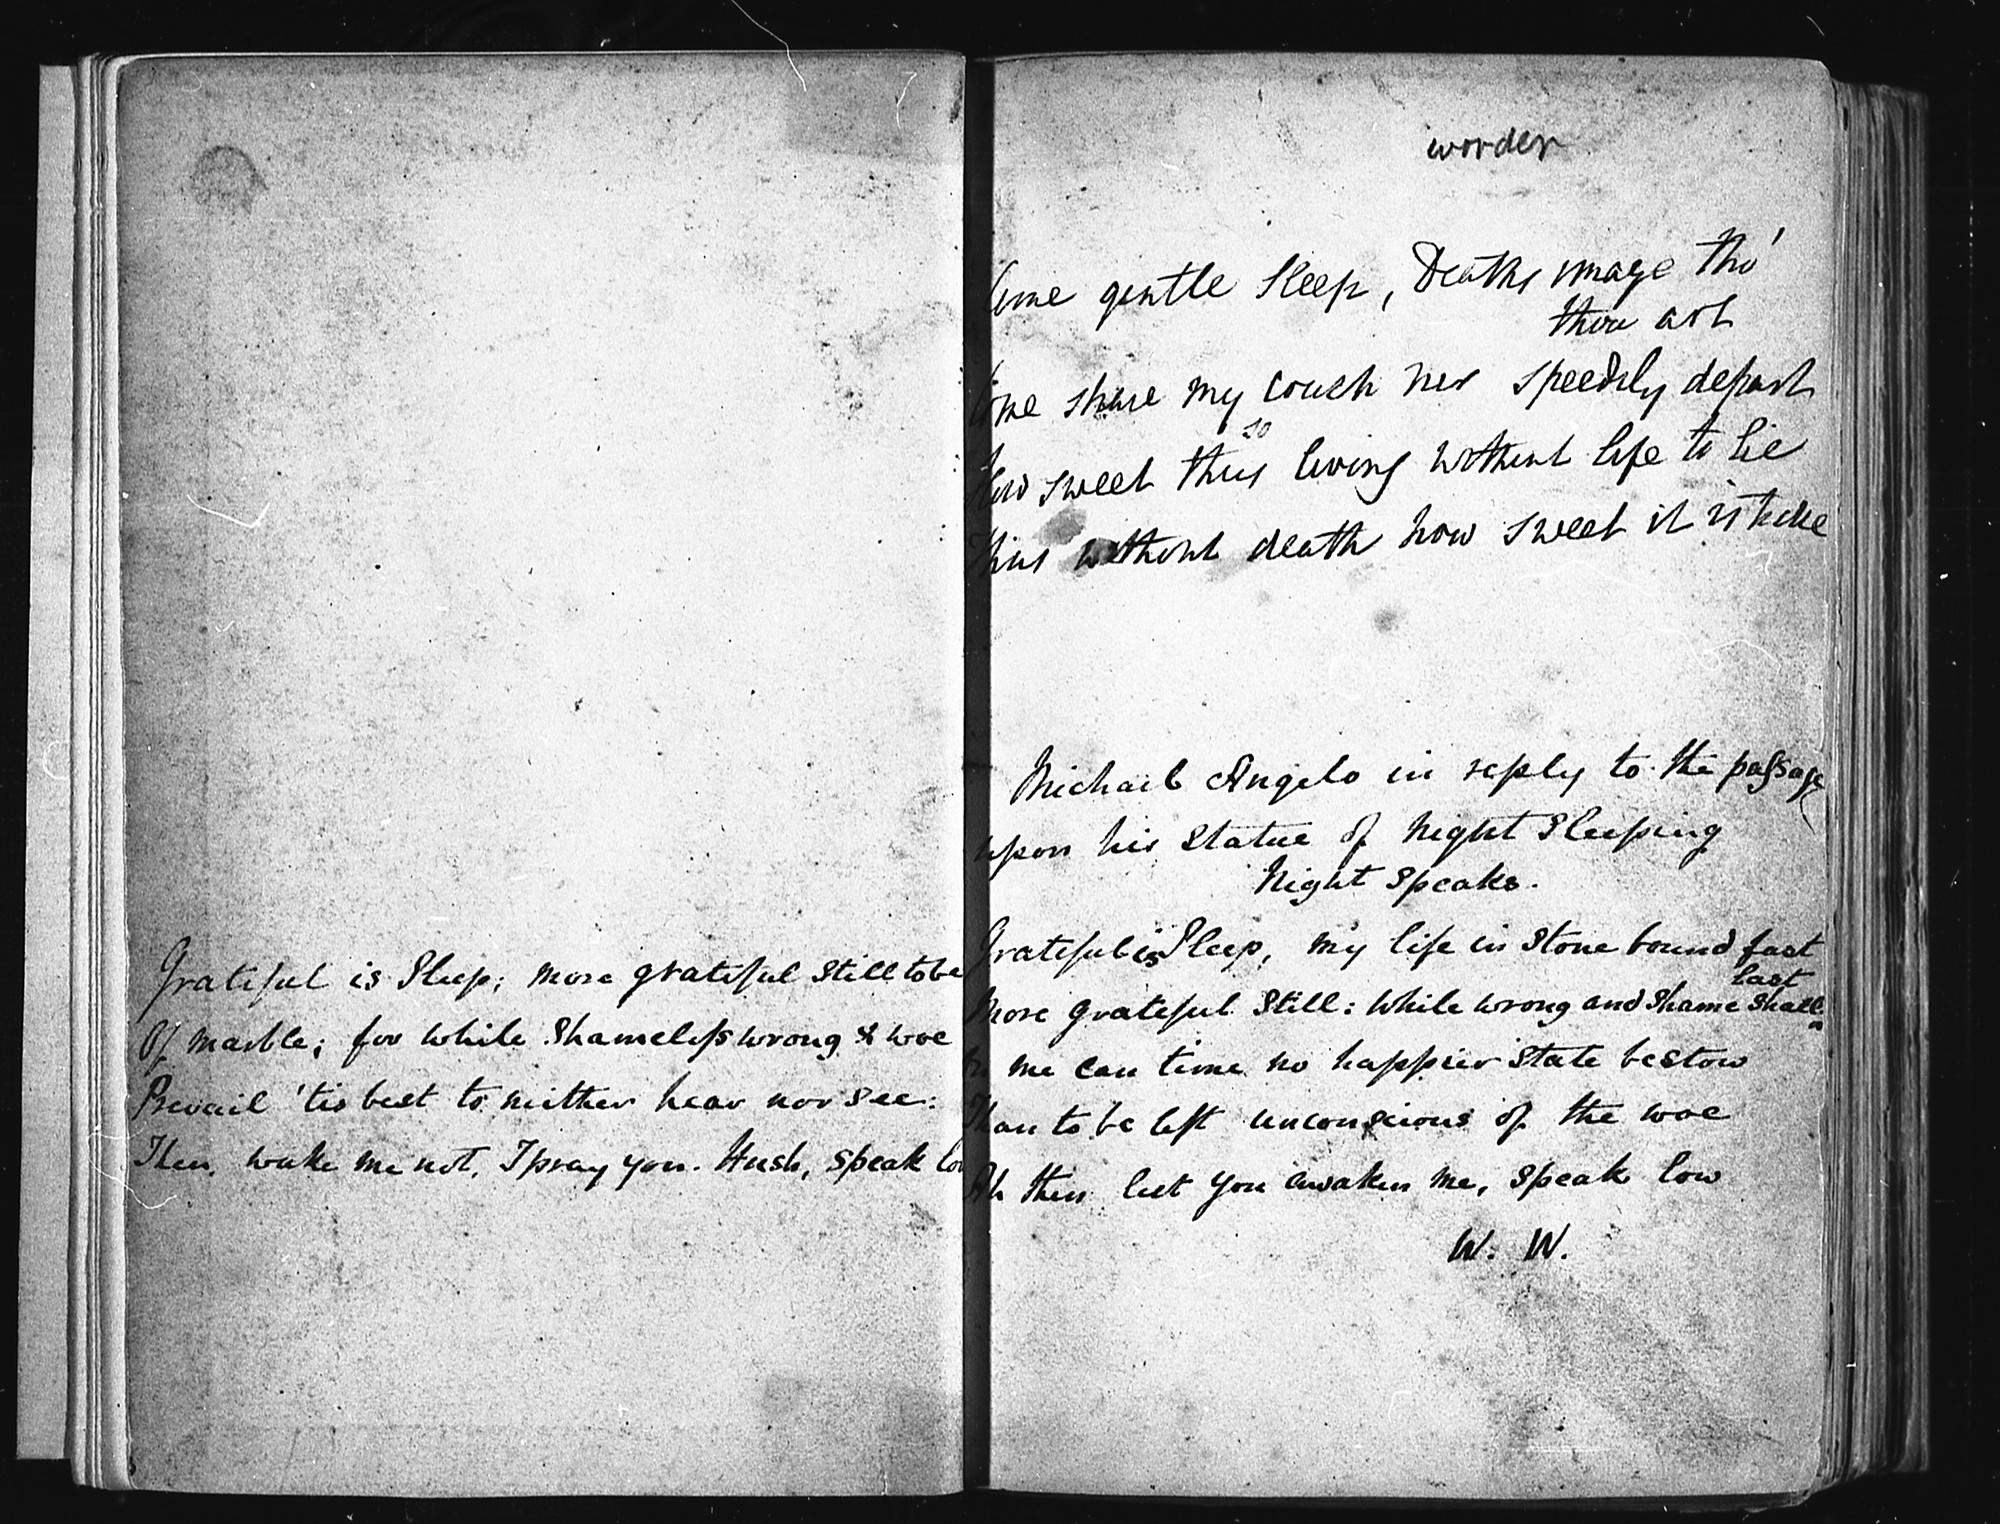 Grateful is Sleep; more grateful still to be
Of marble; for while shameless wrong & woe
Prevail 'tis best to neither hear nor see:
Then wake me not, I pray you. Hush, speak low
worden
Come gentle Sleep, Deaths image tho'
thou art
Come share my couch nor speedily depart
so
How sweet thus living without life to lie
Thus without death how sweet it is to die
Michael Angelo in reply to the passage
upon his statue of Night sleeping
Night speaks.
Grateful is Sleep, my life in stone bound fast
last
More grateful still: while wrong and shame shall
On me can time no happier state bestow
Than to be left unconscious of the woe
Ah then lest you awaken me, speak low
W. W.